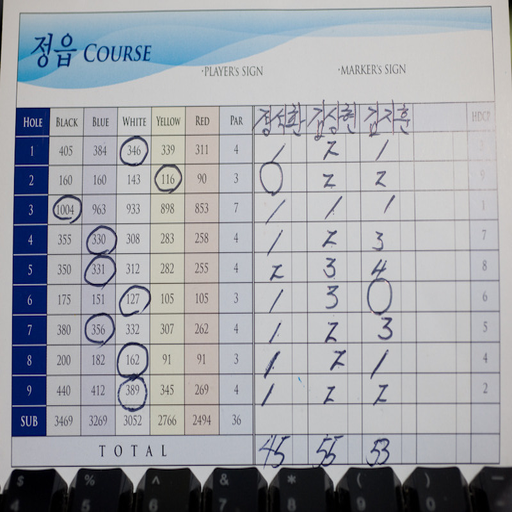 정읍 COURSE
·PLAYER'S SIGN ·MARKER'S SIGN
HOLE BLACK BLUE WHITE YELLOW RED PAR 김상현 HDCP
1 405 384 346 339 311 4 / 2 1
2 160 160 143 116 90 3 0 2 2 9
3 1004 963 933 898 853 7 / 1 1 1
4 355 330 308 283 258 4 / 2 3 7
5 350 331 312 282 255 4 2 3 4 8
6 175 151 127 105 105 3 1 3 0 6
7 380 356 332 307 262 4 1 2 3 5
8 200 182 162 91 91 3 1 2 1 4
9 440 412 389 345 269 4 1 2 2 2
SUB 3469 3269 3052 2766 2494 36
TOTAL 45 55 53
$ % ^ & * ( )
4 5 6 7 8 9 0